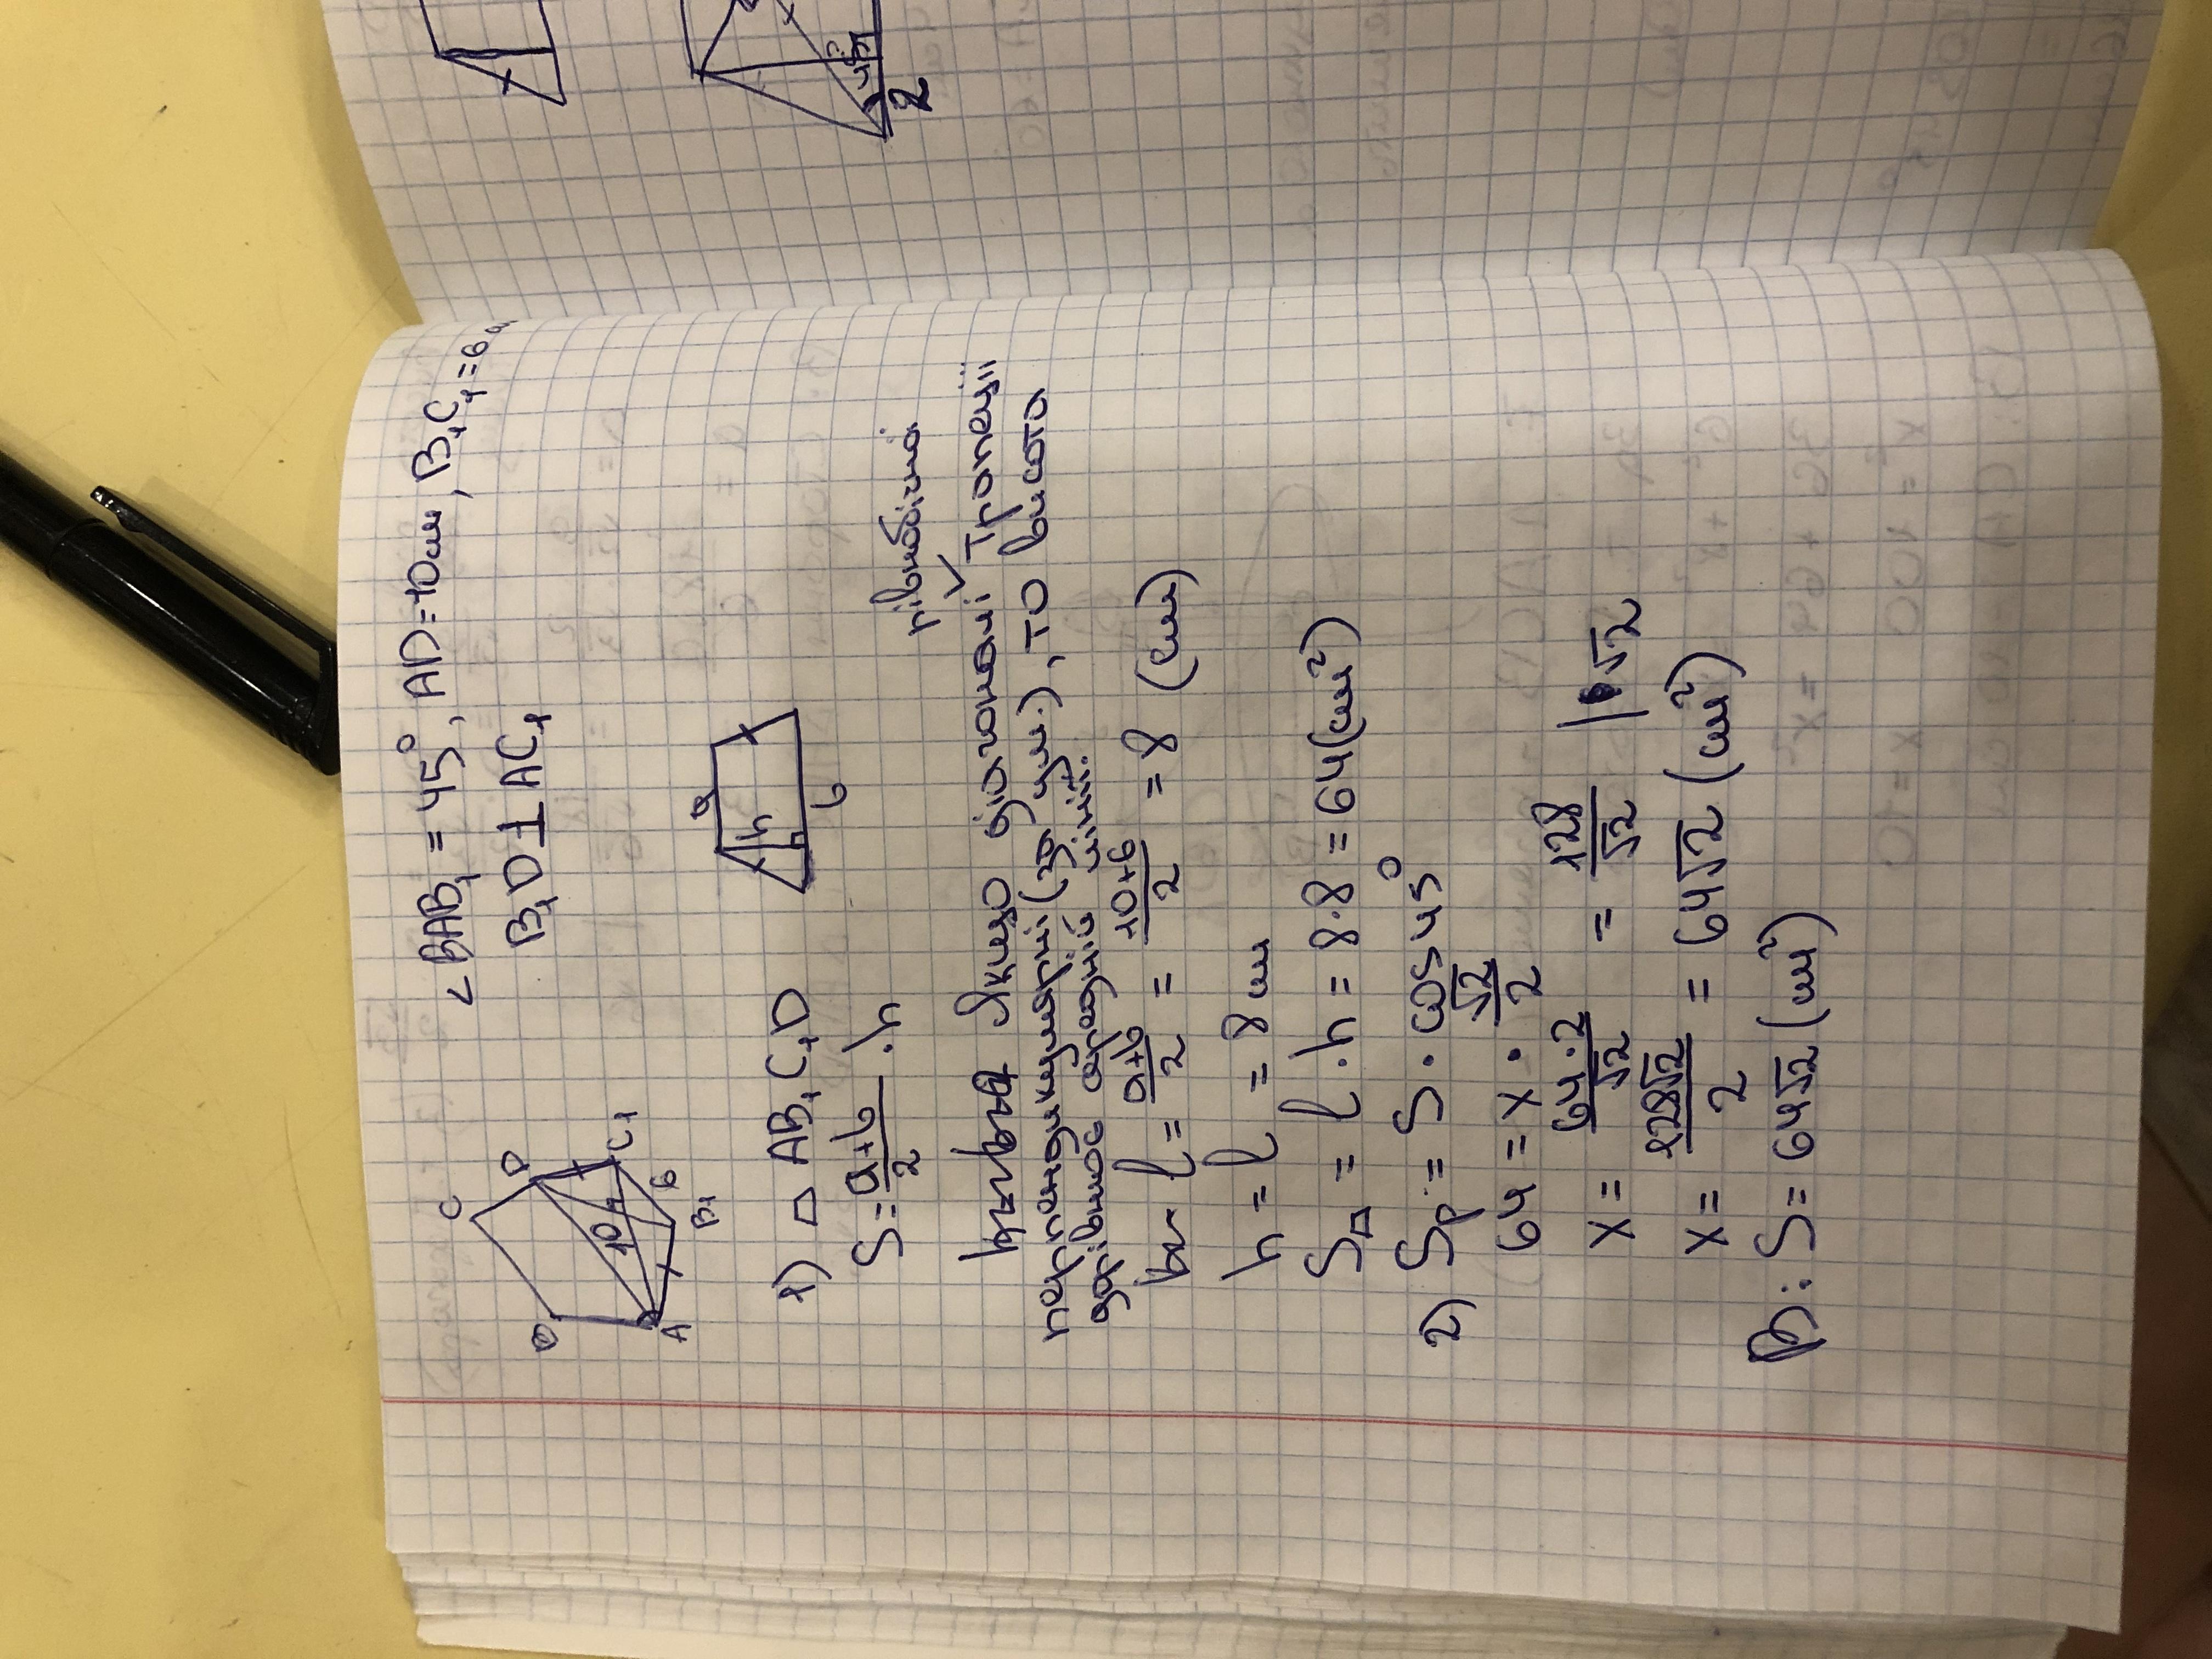 ∠BAB₁ = 45°, AD=10см, B₁C₁=6
B₁D ⊥ AC₁
B
C
D
10
C₁
6
A
B₁
1) AB₁C₁D
S = (a+b)/2 · h
a
h
b
рівнобічної
Якщо діагоналі трапеції
перпендикулярні (за ум.), то висота
дорівнює середній лінії.
l = (a+b)/2 = (10+6)/2 = 8 (см)
h = l = 8 см
S = l · h = 8·8 = 64 (см²)
2) Sр = S · cos 45°
64 = x · √2/2
x = (64·2)/√2 = 128/√2 | √2
x = 128√2/2 = 64√2 (см²)
В: S = 64√2 (см²)
45°
2